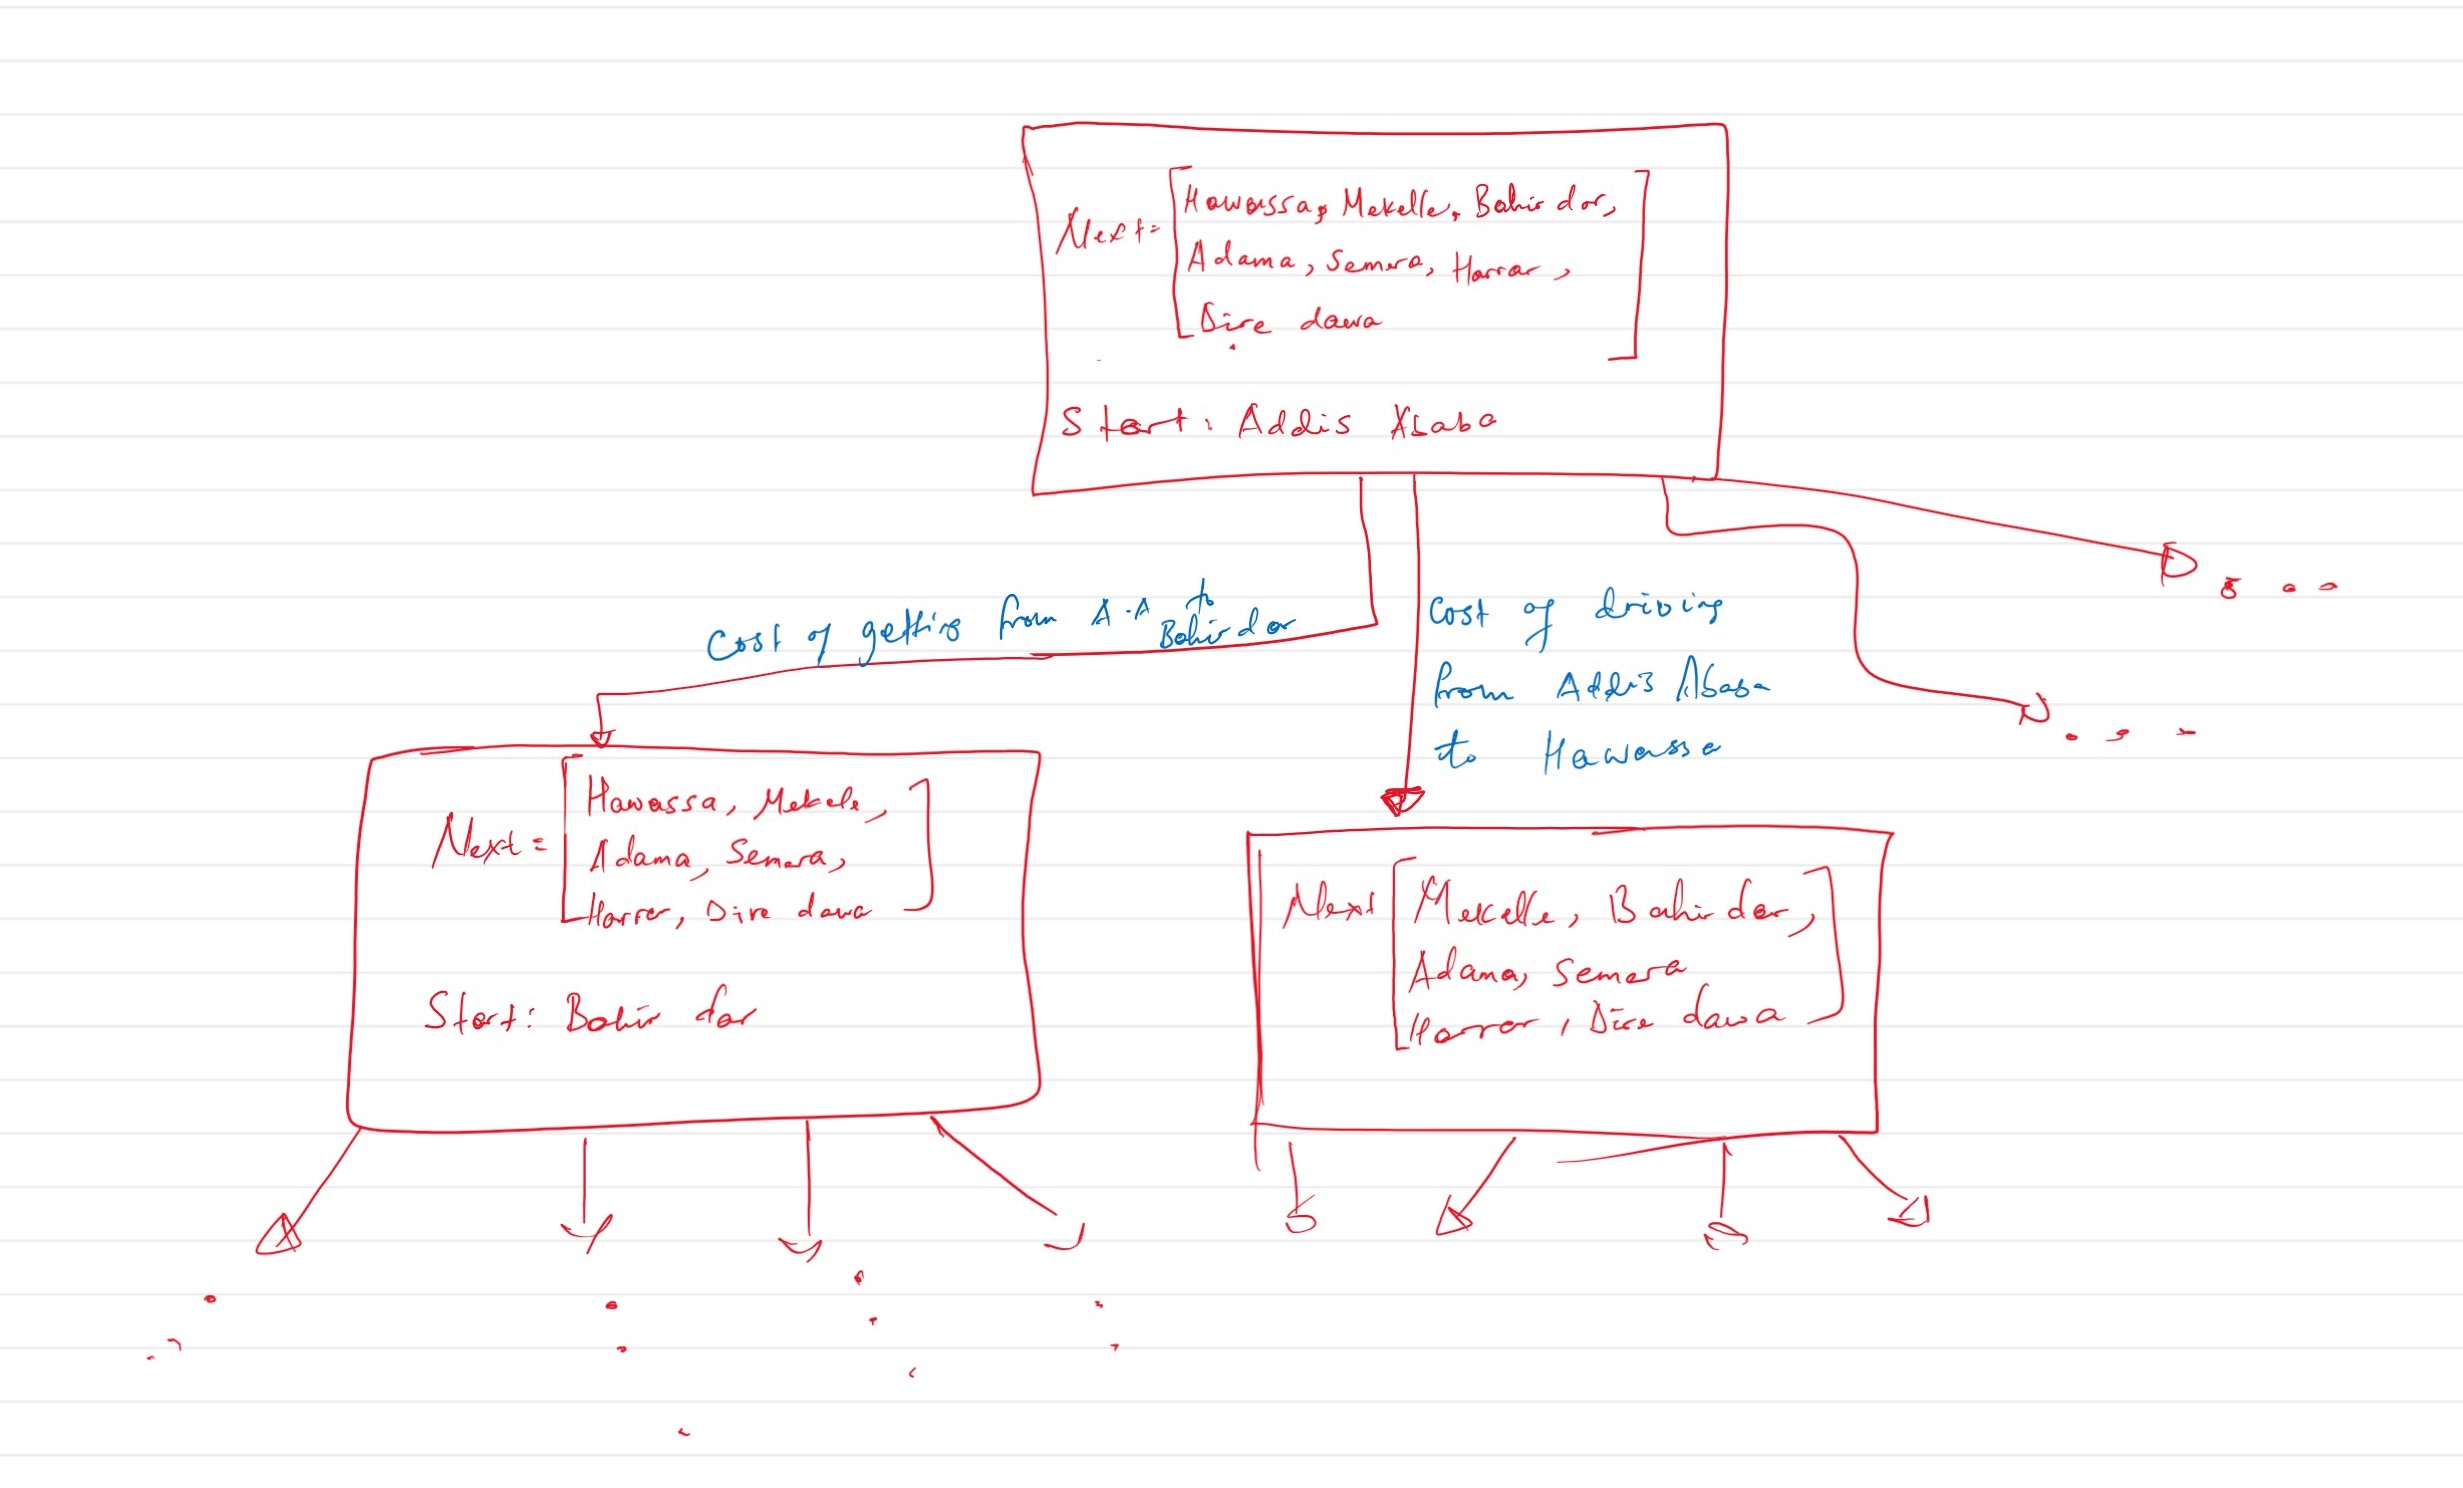 Next = [Hawassa, Mekelle, Bahir dar,
Adama, Semera, Harrar,
Dire dawa]
Start: Addis Ababa
Cost of getting from A.A to
Bahir dar
Cost of driving
from Addis Ababa
to Hawassa
Next = [Hawassa, Mekele,
Adama, Semera,
Harrar, Dire dawa]
Start: Bahir dar
Next [Mekelle, Bahir dar,
Adama, Semera
Harrar, Dire dawa]